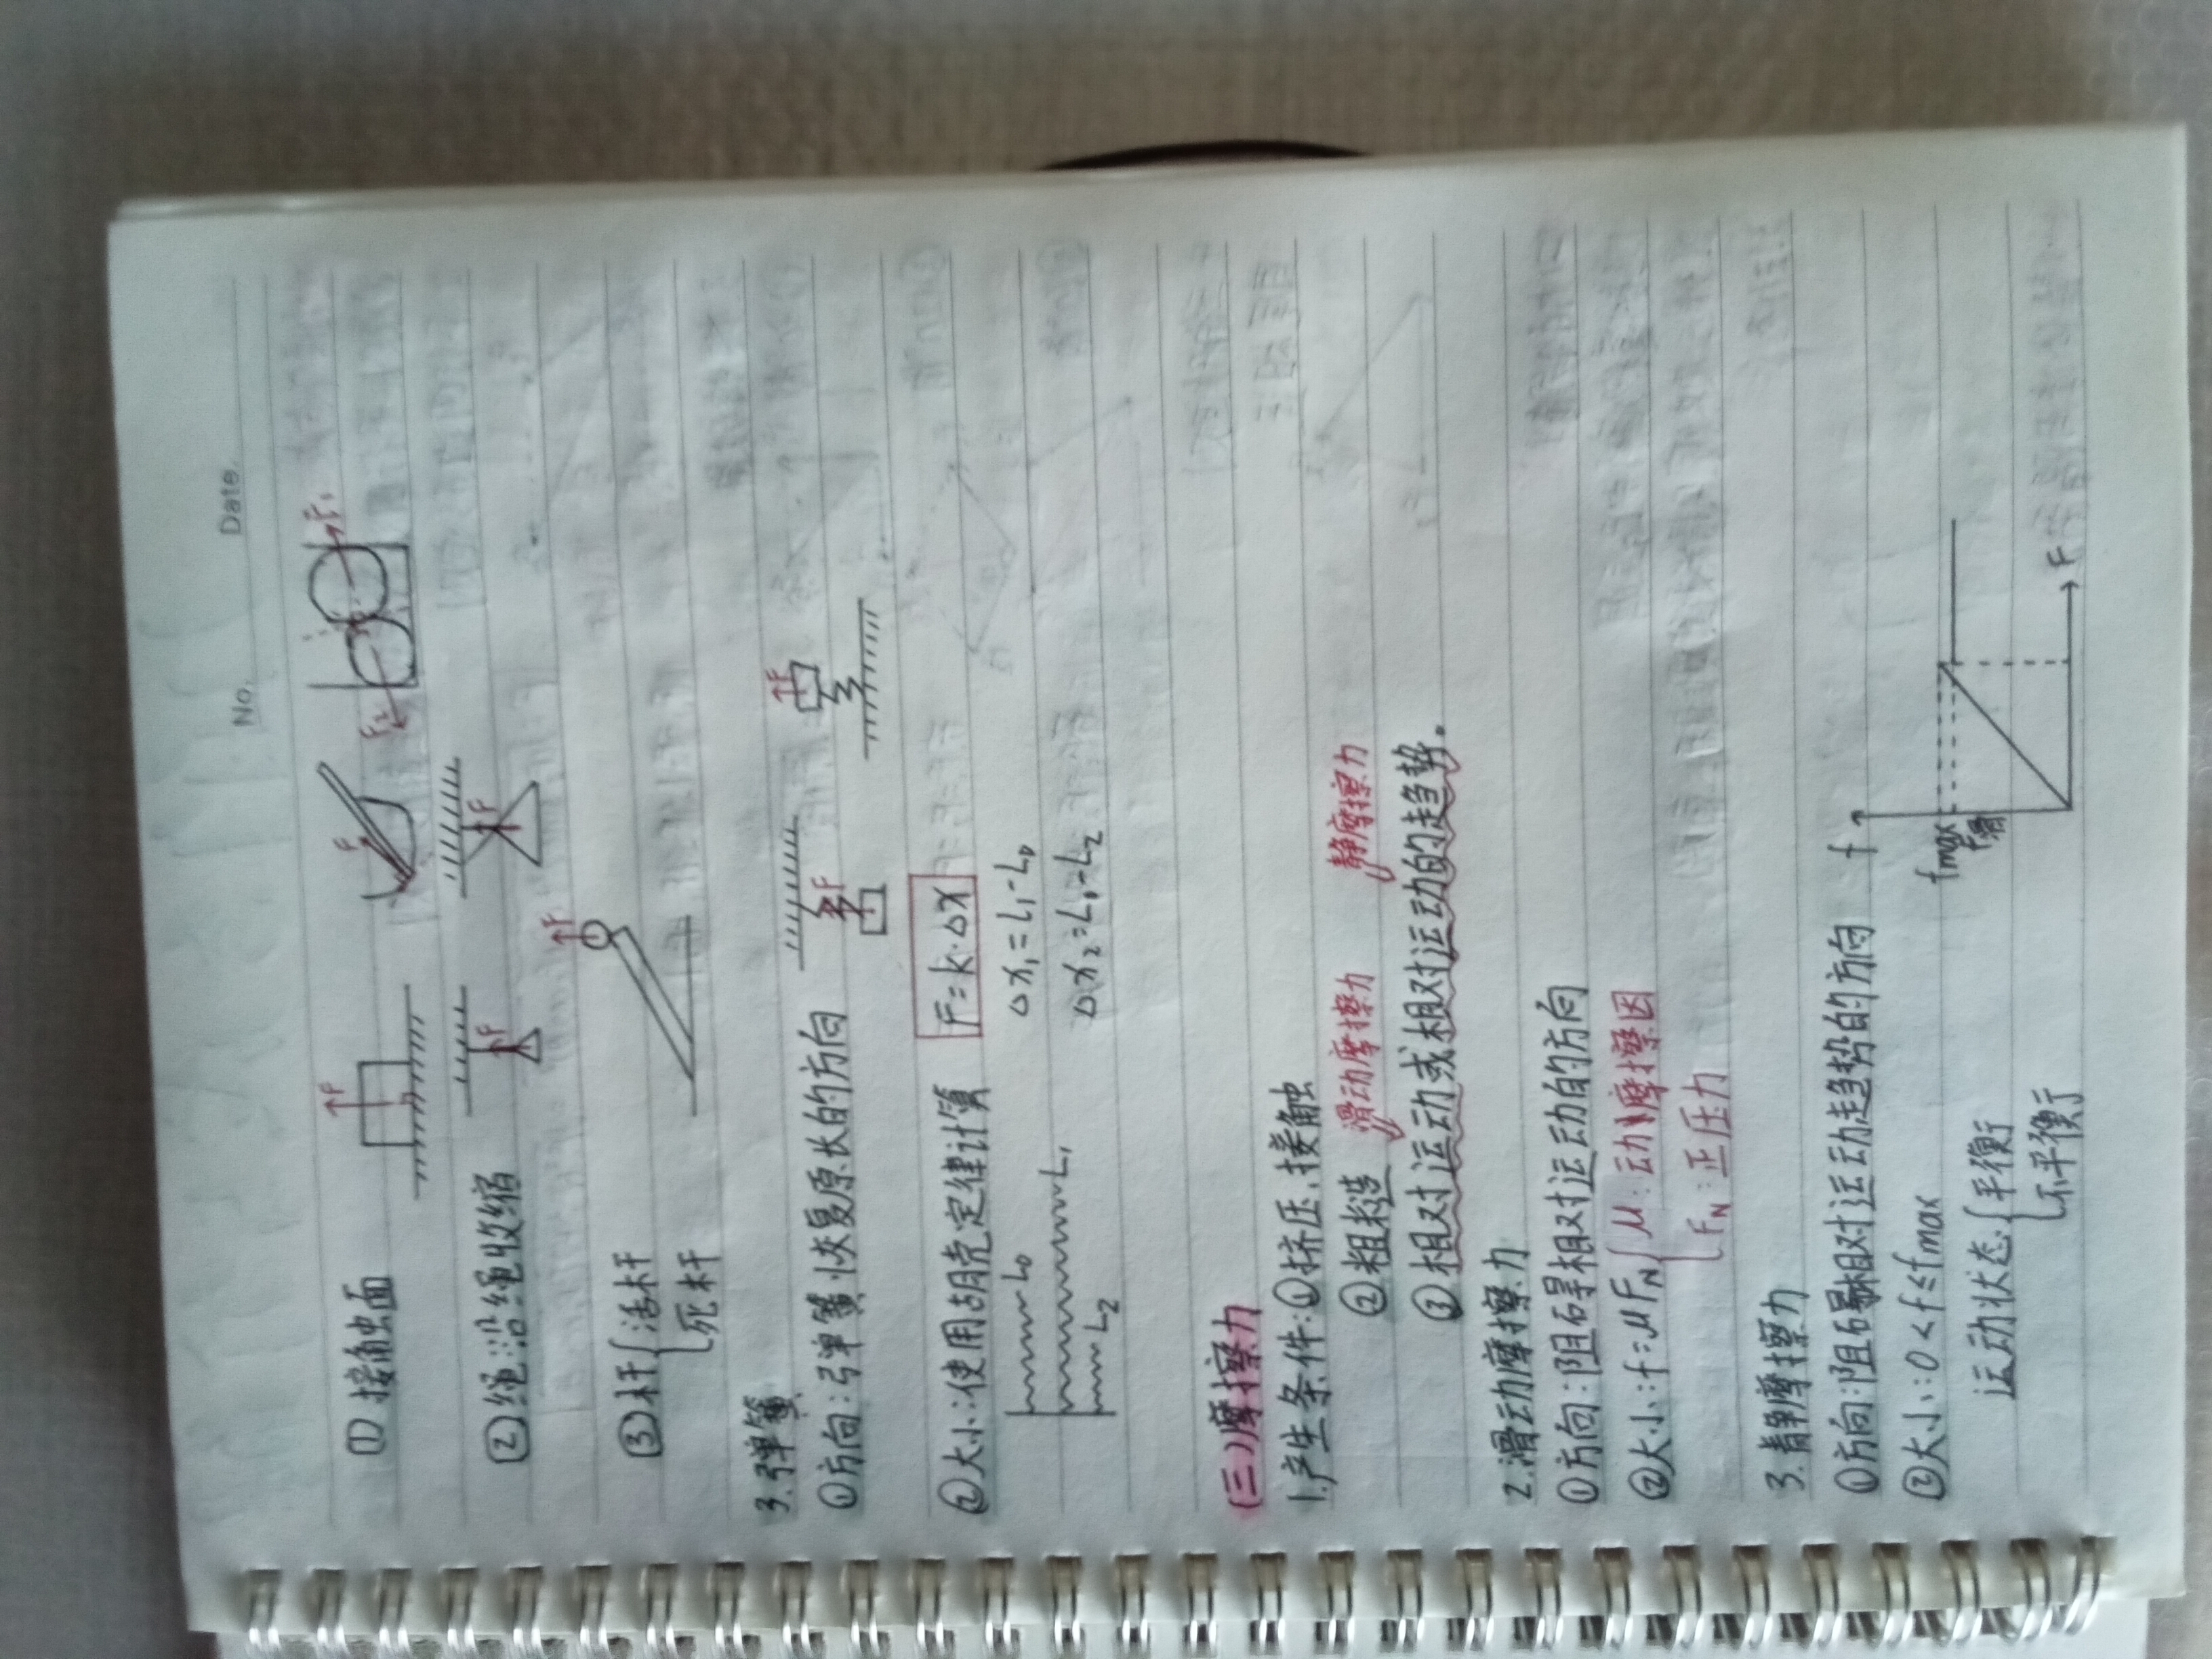 No.
Date.
① 接触面
F
F
F₂
F₁
②绳:沿绳收缩
F
F
③杆{活杆
死杆
F
3.弹簧
①方向:弹簧恢复原长的方向
F
F
②大小:使用胡克定律计算
F=k·Δx
L₀
L₁
L₂
Δx₁=L₁-L₀
Δx₂=L₁-L₂
(三)摩擦力
1.产生条件:①挤压、接触
②粗糙
滑动摩擦力
静摩擦力
③相对运动或相对运动的趋势。
2.滑动摩擦力
①方向:阻碍相对运动的方向
②大小:f=μFN{μ:动摩擦因
FN:正压力
3.静摩擦力
①方向:阻碍相对运动趋势的方向
②大小:0<f≤fmax
运动状态{平衡
不平衡
f
fmax
f滑
F